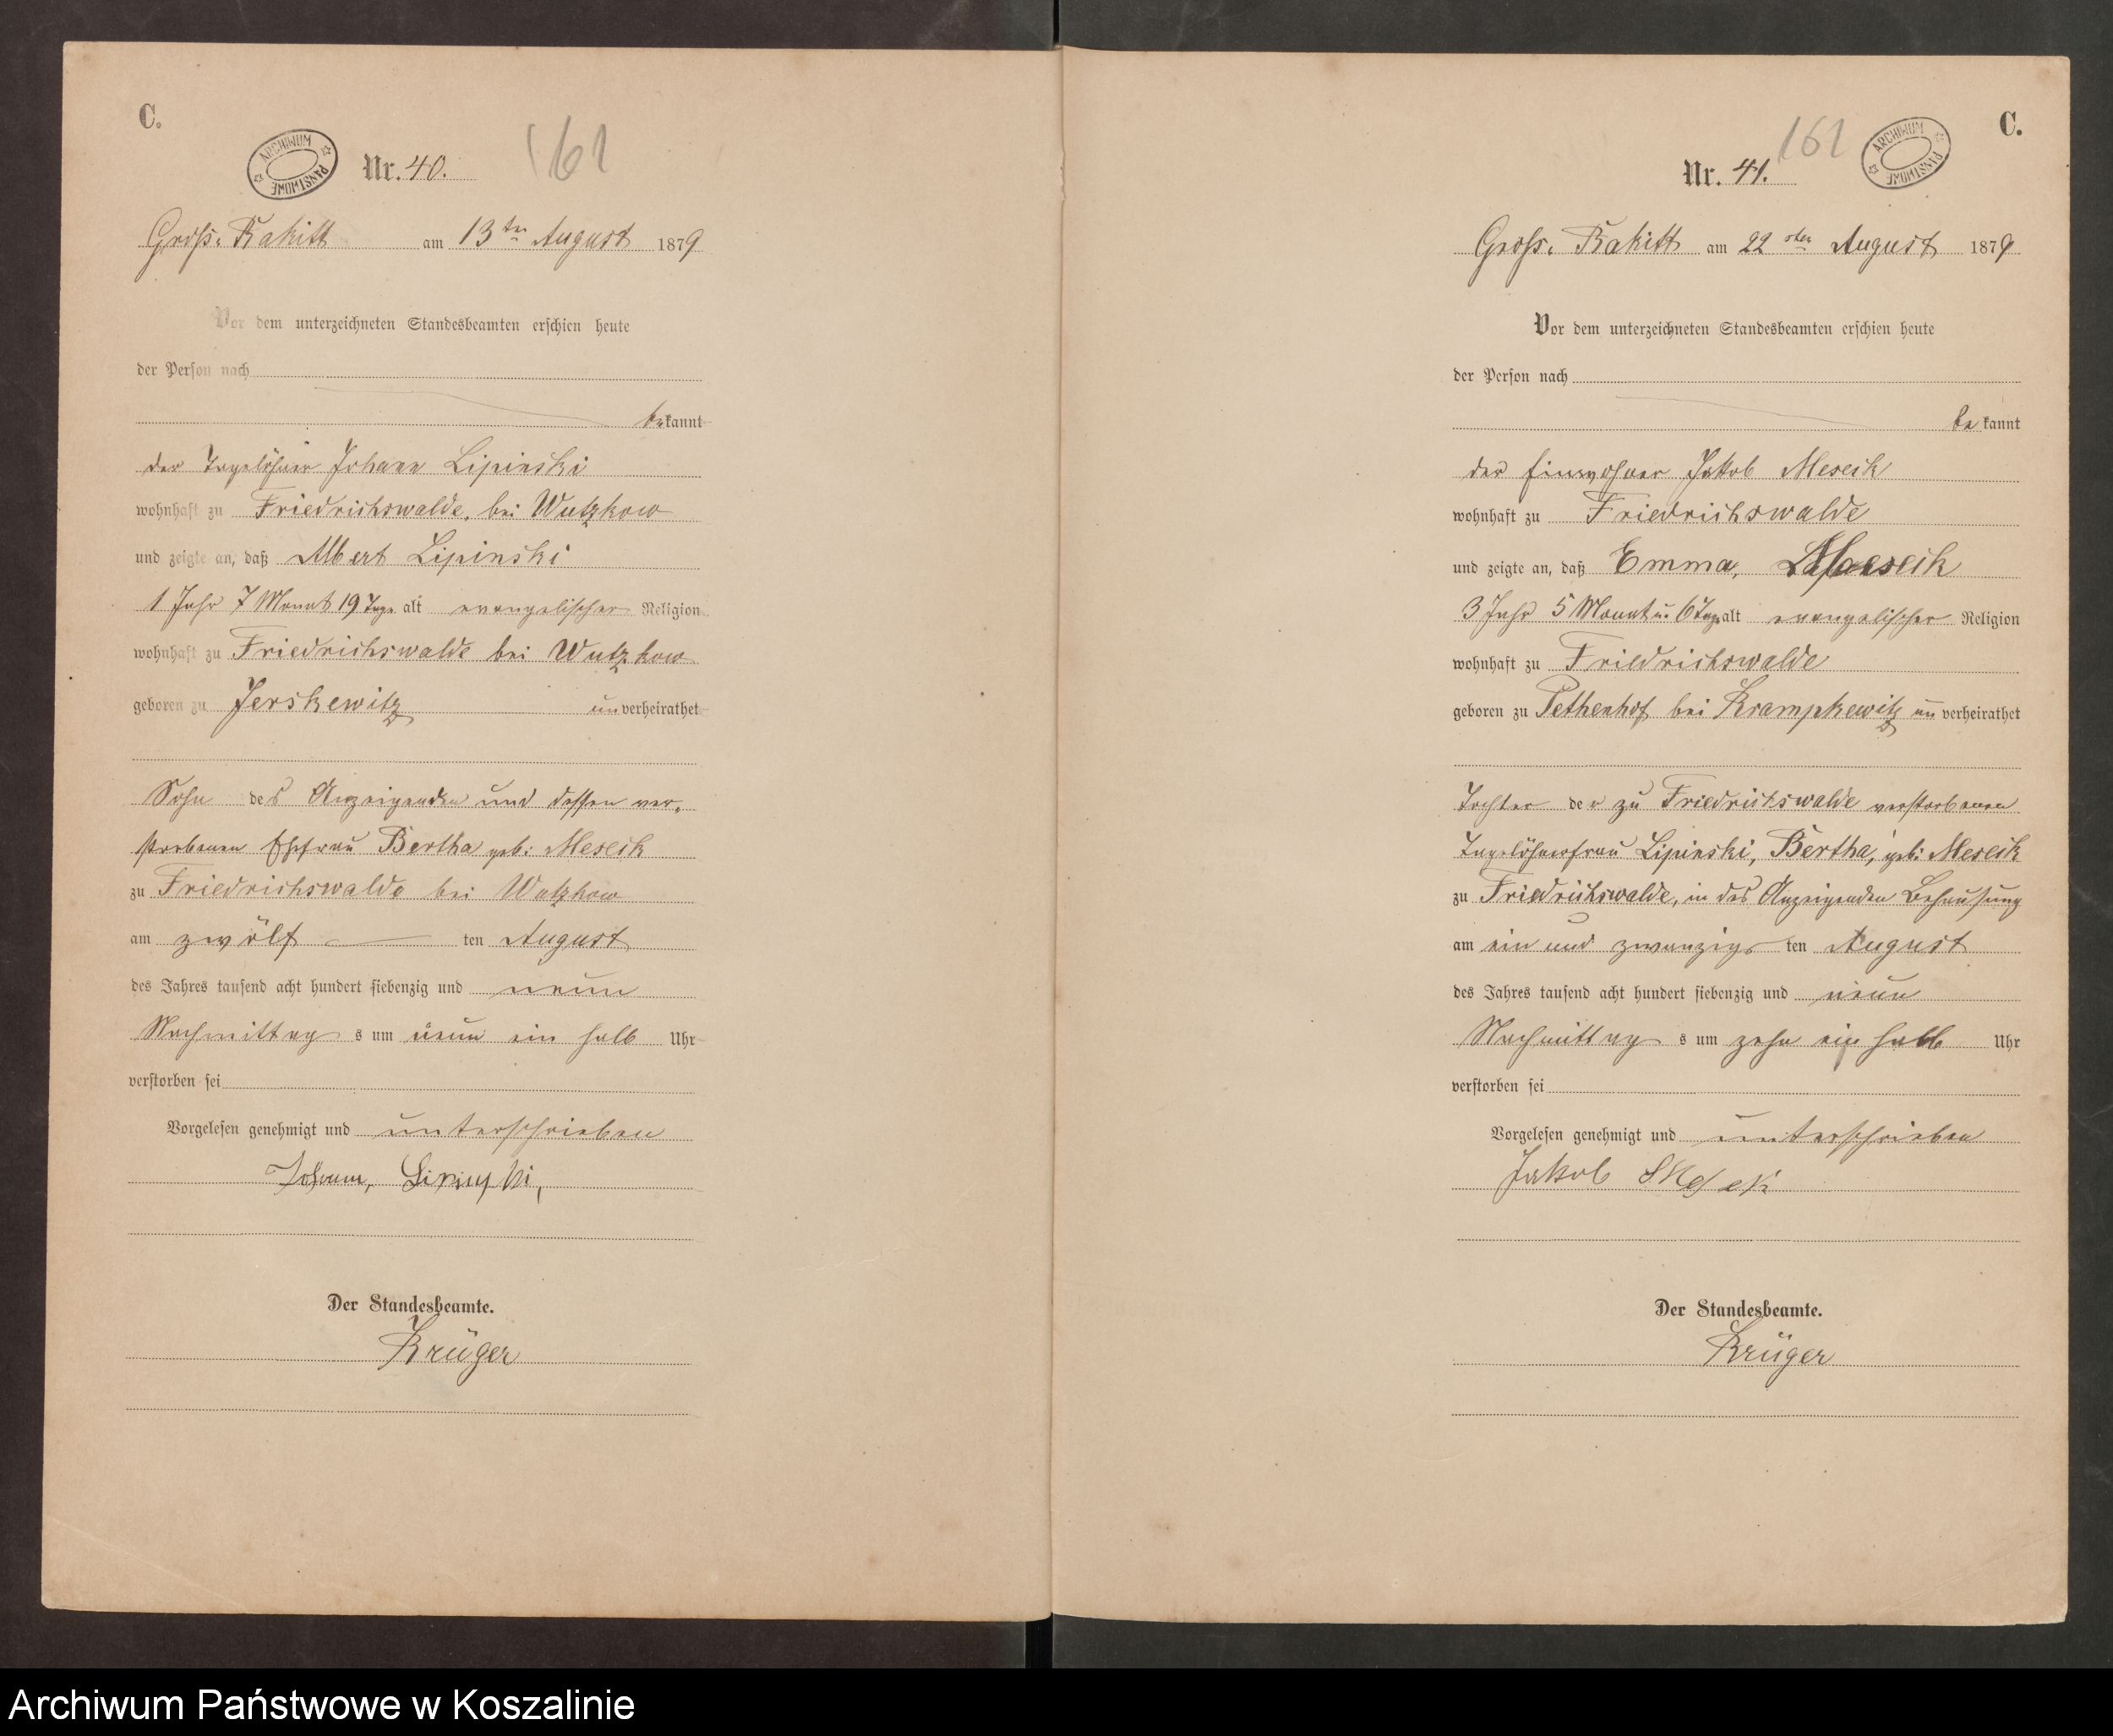 C.
ARCHIWUM PAŃSTWOWE
Nr. 40.
161
Groß-Rakitt am 13ten August 1879
Vor dem unterzeichneten Standesbeamten erschien heute
der Person nach
bekannt
der Tagelöhner Johann Lipinski
wohnhaft zu Friedrichswalde, bei Wutzkow
und zeigte an, daß Albert Lipinski
1 Jahr 7 Monat 19 Tage alt evangelischer Religion
wohnhaft zu Friedrichswalde bei Wutzkow
geboren zu Jerskewitz unverheirathet
Sohn des Anzeigenden und dessen ver-
storbenen Ehefrau Bertha geb: Meseck
zu Friedrichswalde bei Wutzkow
am zwölf ten August
des Jahres tausend acht hundert siebenzig und neun
Nachmittags um neun ein halb Uhr
verstorben sei
Vorgelesen genehmigt und unterschrieben
Johann, Lipinski,
Der Standesbeamte.
Krüger
C.
ARCHIWUM PAŃSTWOWE
161
Nr. 41.
Groß-Rakitt am 22sten August 1879
Vor dem unterzeichneten Standesbeamten erschien heute
der Person nach
bekannt
der Einwohner Jakob Meseck
wohnhaft zu Friedrichswalde
und zeigte an, daß Emma, Meseck
3 Jahr 5 Monat u. 6 Tage alt evangelischer Religion
wohnhaft zu Friedrichswalde
geboren zu Pethenhof bei Krampkewitz unverheirathet
Tochter der zu Friedrichswalde verstorbenen
Tagelöhnerfrau Lipinski, Bertha, geb: Meseck
zu Friedrichswalde, in des Anzeigenden Behausung
am ein und zwanzigs ten August
des Jahres tausend acht hundert siebenzig und neun
Nachmittags um zehn ein halb Uhr
verstorben sei
Vorgelesen genehmigt und unterschrieben
Jakob Mesek
Der Standesbeamte.
Krüger
Archiwum Państwowe w Koszalinie